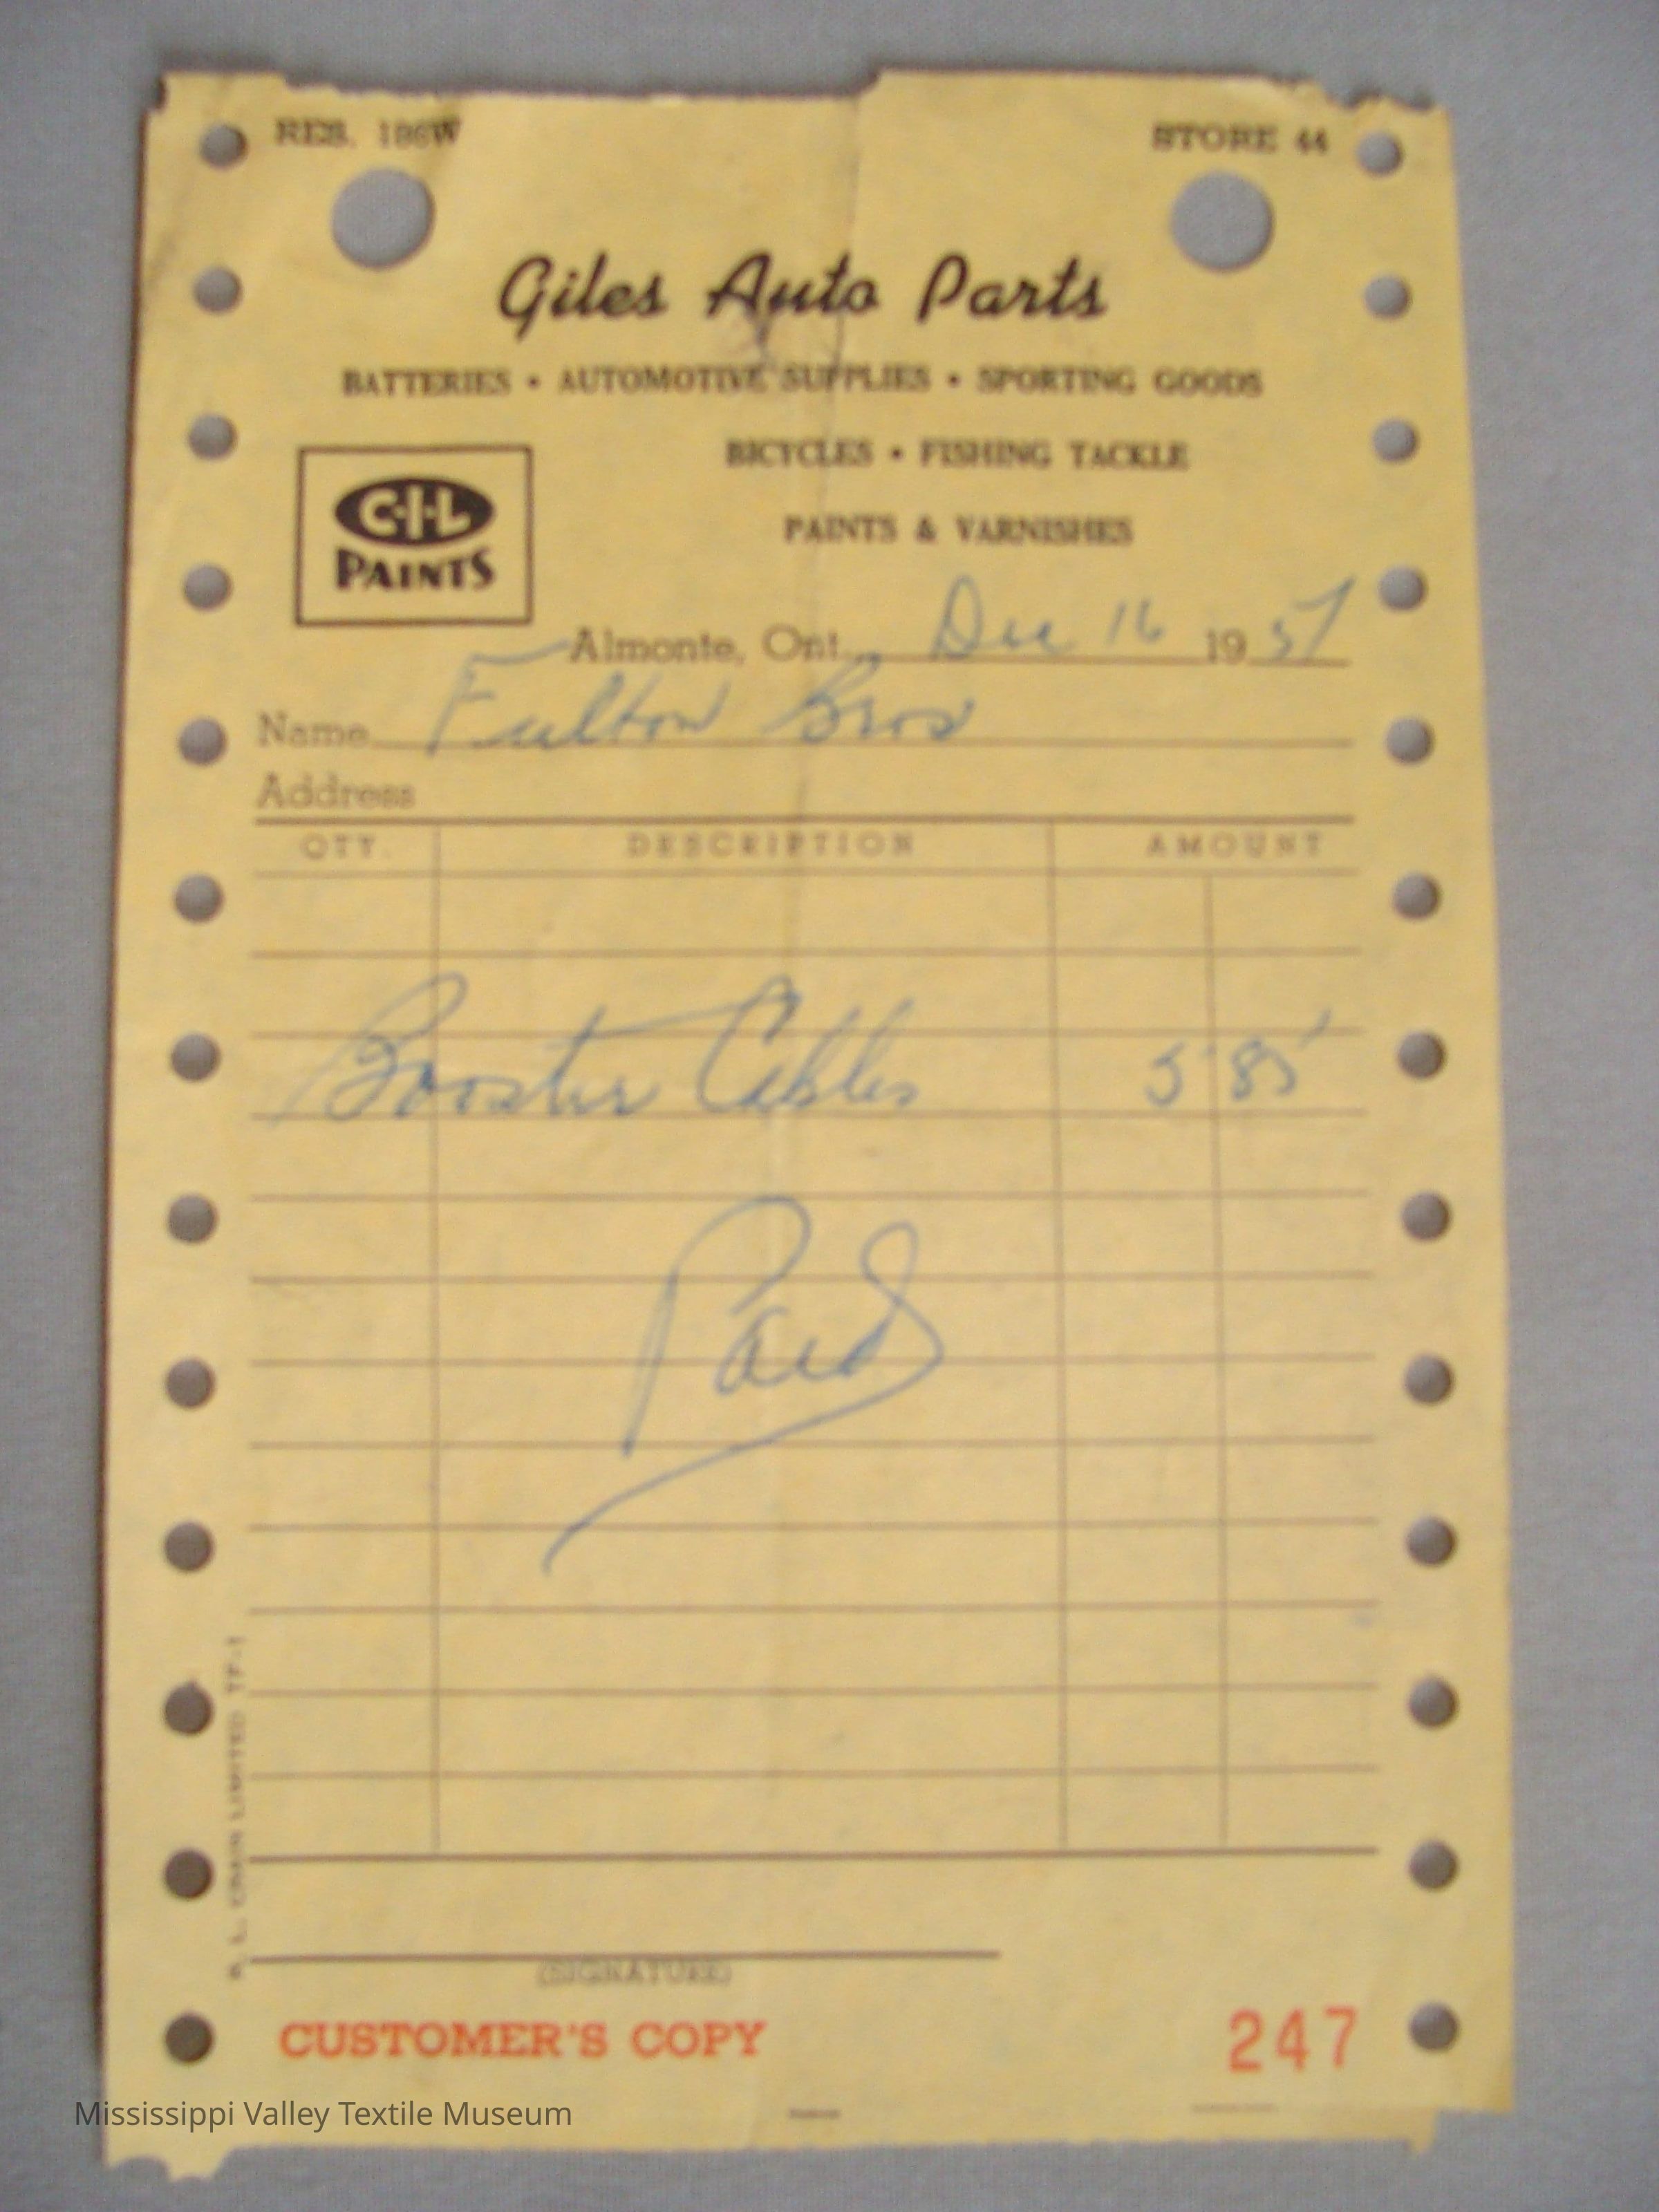 RES. 186W STORE 44
Giles Auto Parts
BATTERIES • AUTOMOTIVE SUPPLIES • SPORTING GOODS
BICYCLES • FISHING TACKLE
C-I-L
PAINTS
PAINTS & VARNISHES
Almonte, Ont. Dec 16 1957
Name Fulton Bros
Address
QTY. DESCRIPTION AMOUNT
Booster Cables 5 85
Paid
L. CRAIN LIMITED TF-1
(SIGNATURE)
CUSTOMER'S COPY 247
Mississippi Valley Textile Museum